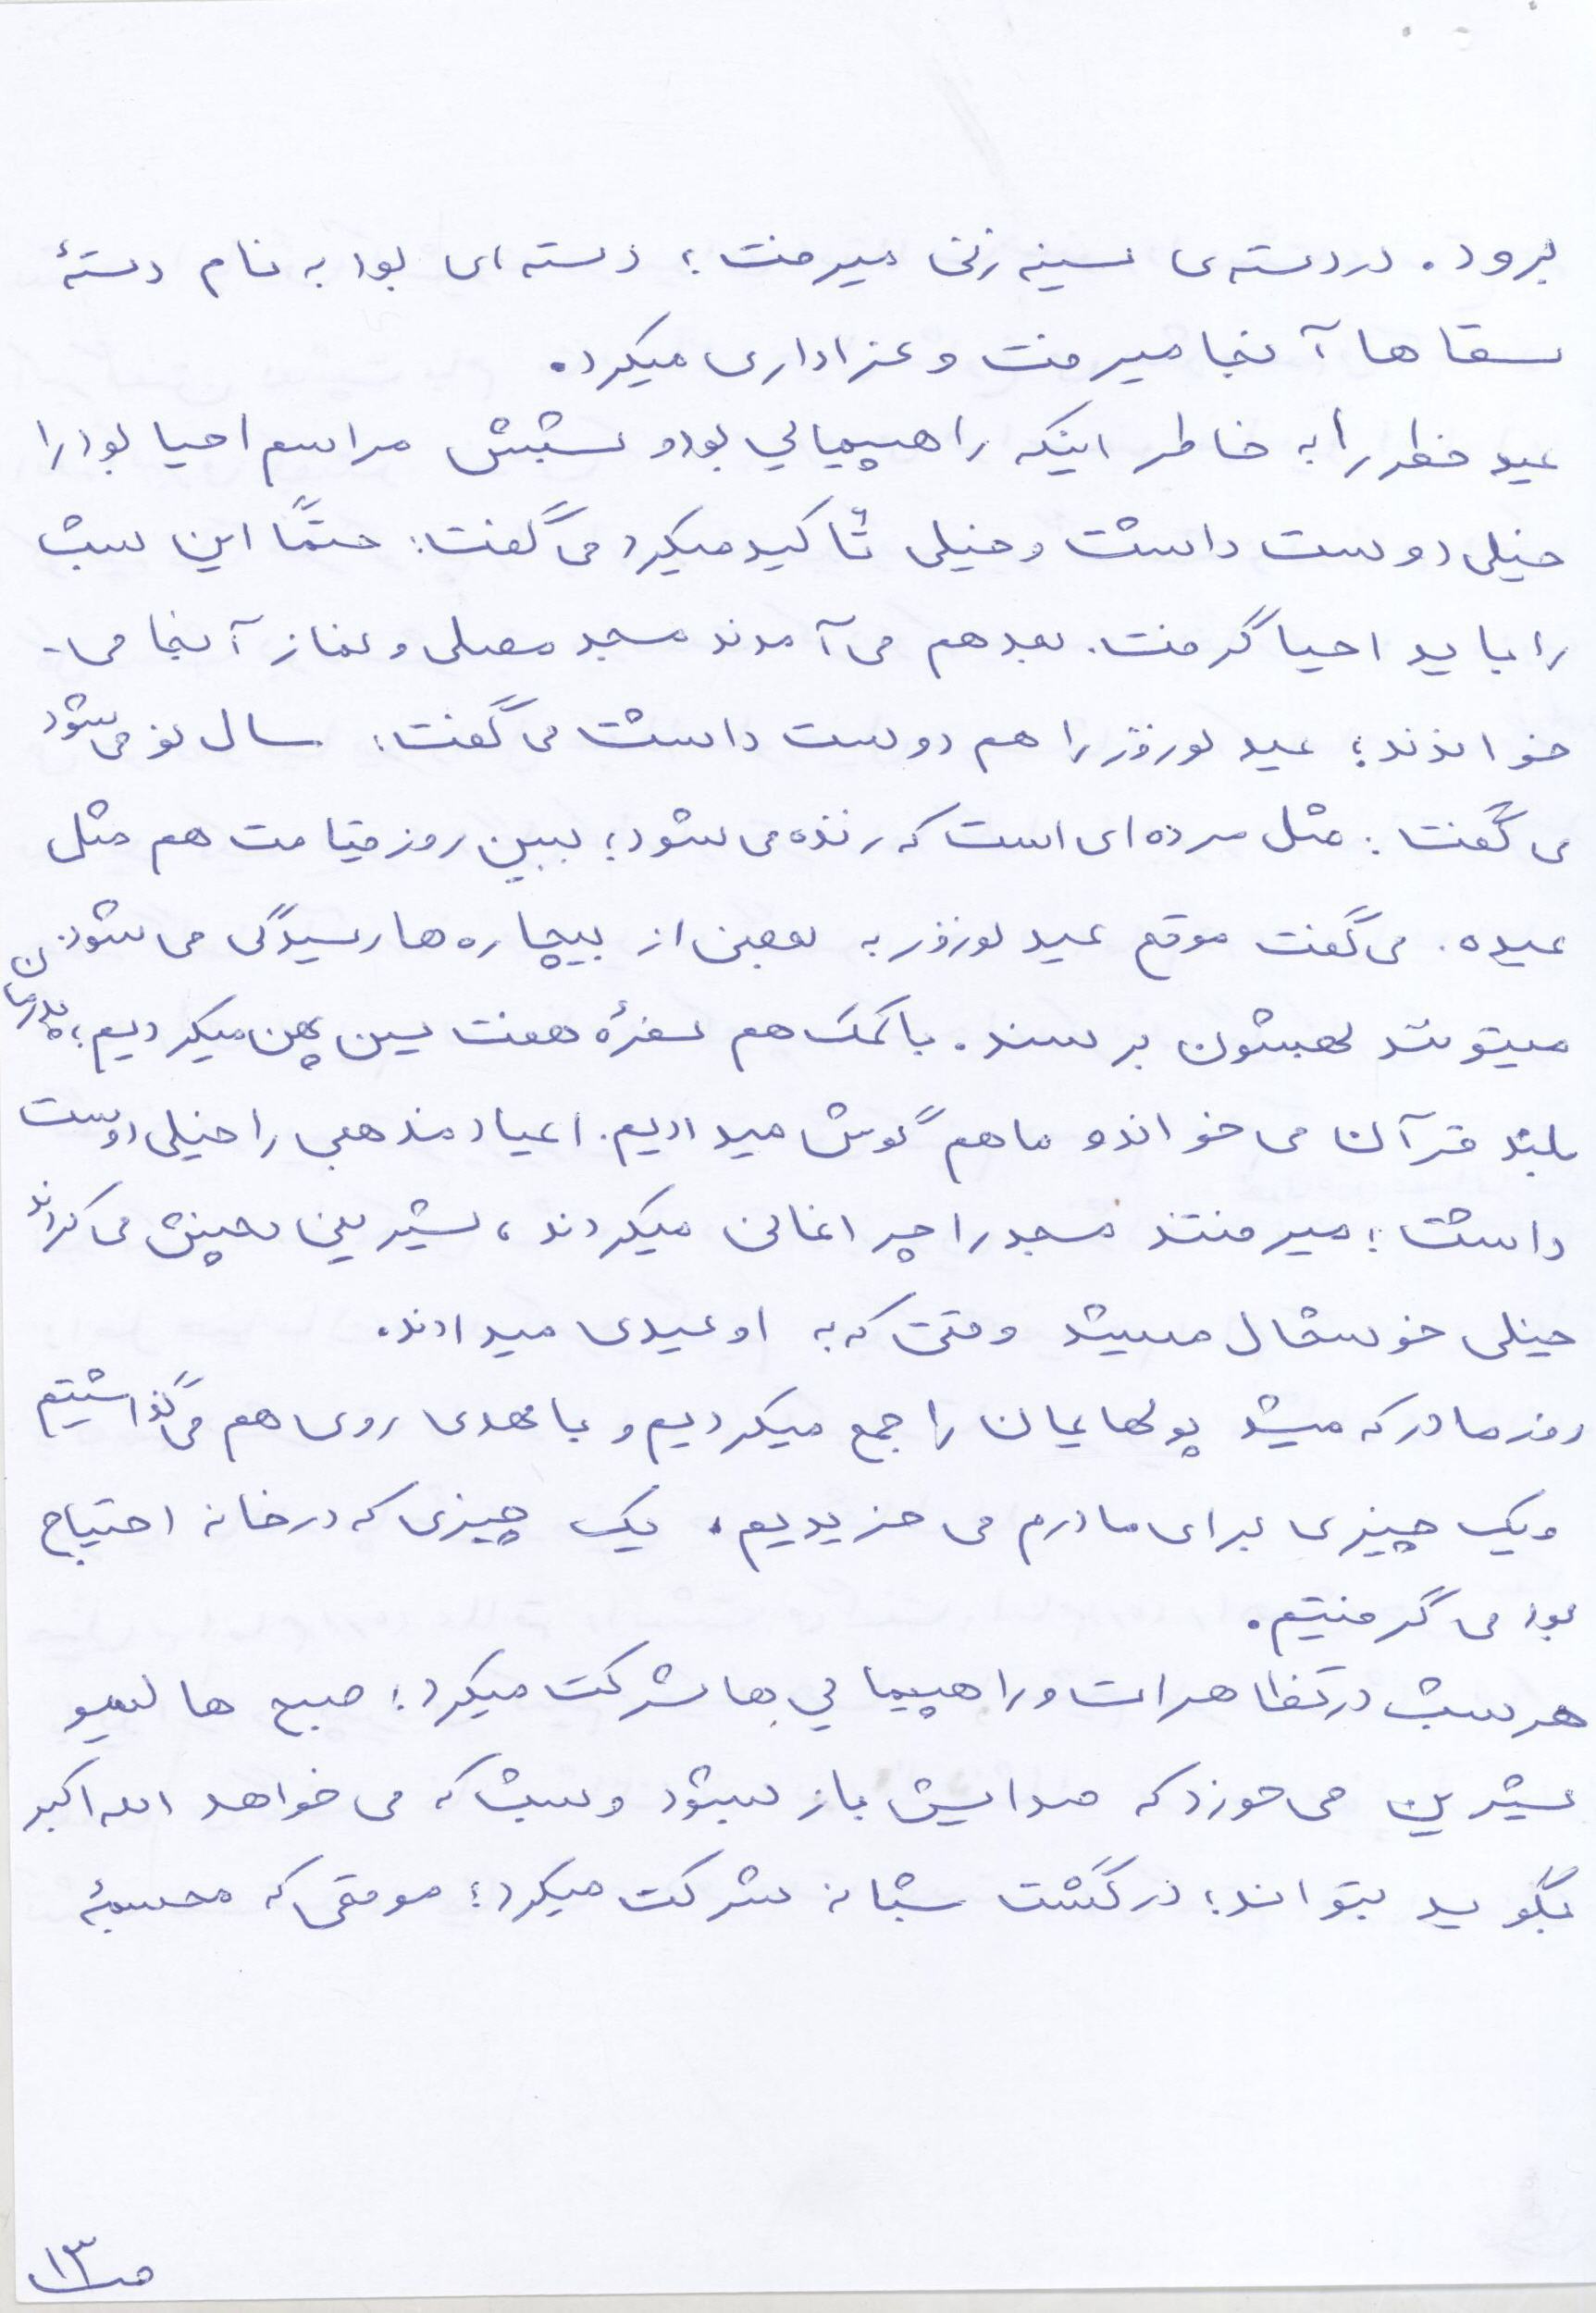 برود. در دسته‌ی سینه زنی میرفت؛ دسته‌ای بود به نام دستهٔ
سقاها آنجا میرفت و عزاداری میکرد.
عید فطر را به خاطر اینکه راهپیمایی بود و شبش مراسم احیا بود را
خیلی دوست داشت و خیلی تأکید میکرد می‌گفت: حتماً این شب
را باید احیا گرفت. بعد هم می‌آمدند مسجد مصلی و نماز آنجا می-
خواندند؛ عید نوروز را هم دوست داشت می‌گفت: سال نو می‌شود
می‌گفت: مثل مرده‌ای است که زنده می‌شود؛ ببین روز قیامت هم مثل
عیده. می‌گفت موقع عید نوروز به بعضی از بیچاره‌ها رسیدگی می‌شود.
میتونند بهشون برسند. با کمک هم سفرهٔ هفت سین پهن میکردیم؛ پدرمان
بلند قرآن می‌خواند و ما هم گوش میدادیم. اعیاد مذهبی را خیلی دوست
داشت؛ میرفتند مسجد را چراغانی میکردند، شیرینی پخش می‌کردند
خیلی خوشحال میشد وقتی که به او عیدی میدادند.
روز مادر که میشد پولهایمان را جمع میکردیم و با مهدی روی هم می‌گذاشتیم
و یک چیزی برای مادرم می‌خریدیم. یک چیزی که در خانه احتیاج
بود می‌گرفتیم.
هر شب در تظاهرات و راهپیمایی‌ها شرکت میکرد؛ صبح ها لیمو
شیرین می‌خورد که صدایش باز بشود و شب که می‌خواهد الله اکبر
بگوید بتواند؛ در گشت شبانه شرکت میکرد؛ موقعی که مجسمهٔ
ص ۱۳